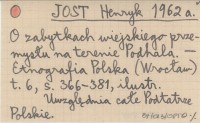 JOST Henryk 1962 a.
O zabytkach wiejskiego prze-
mysłu na terenie Podhala. —
Etnografia Polska (Wrocław)
t. 6, s. 366-381, ilustr.
Uwzględnia całe Podtatrze
Polskie.